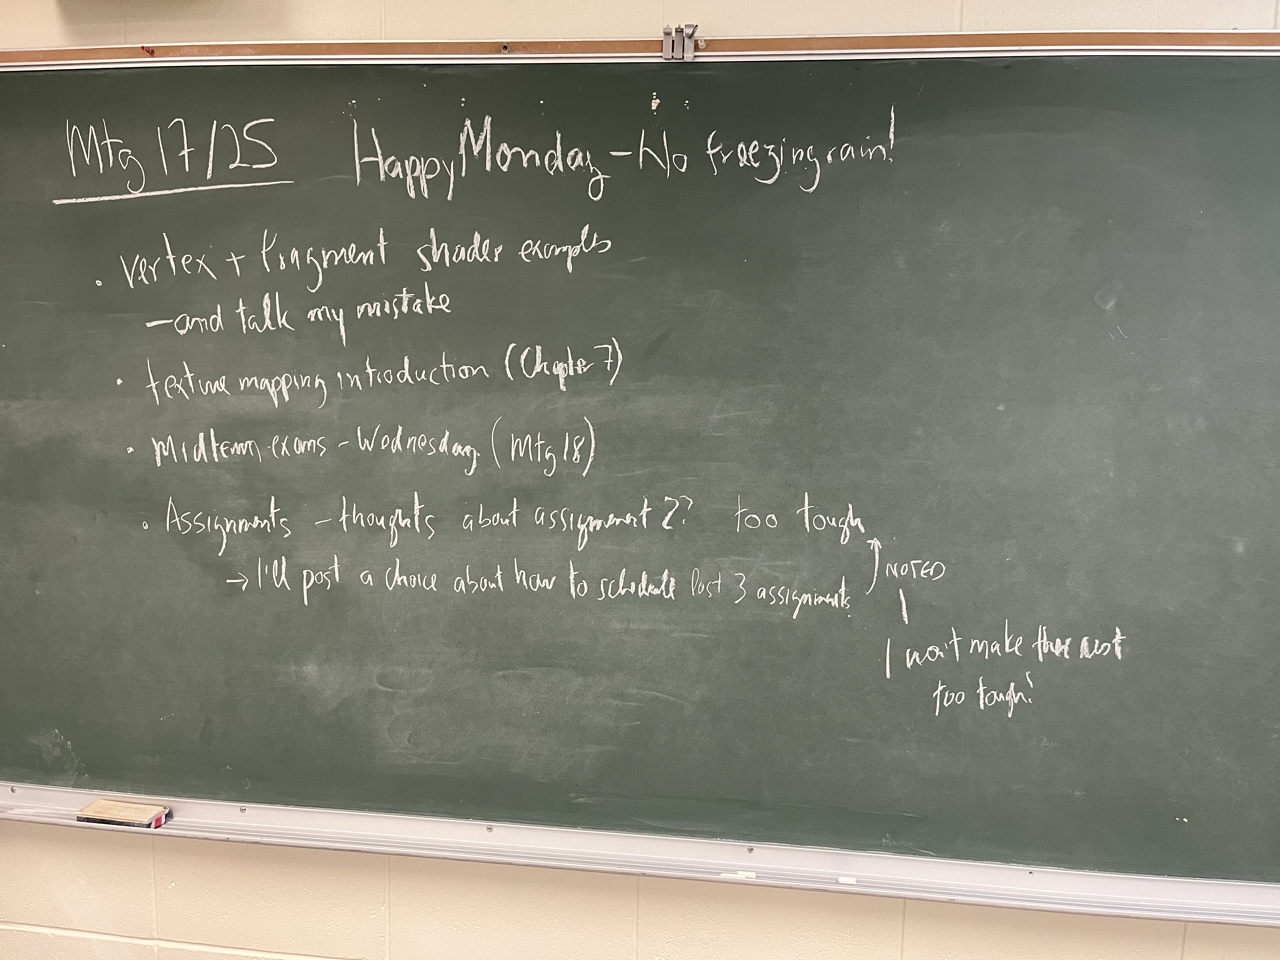 Mtg 17/25 Happy Monday - No freezing rain!
• vertex + fragment shader examples
- and talk my mistake
• texture mapping introduction (Chapter 7)
• Midterm exams - Wednesday (Mtg 18)
• Assignments - thoughts about assignment 2? too tough
→ I'll post a choice about how to schedule last 3 assignments
NOTED
I won't make the rest
too tough!